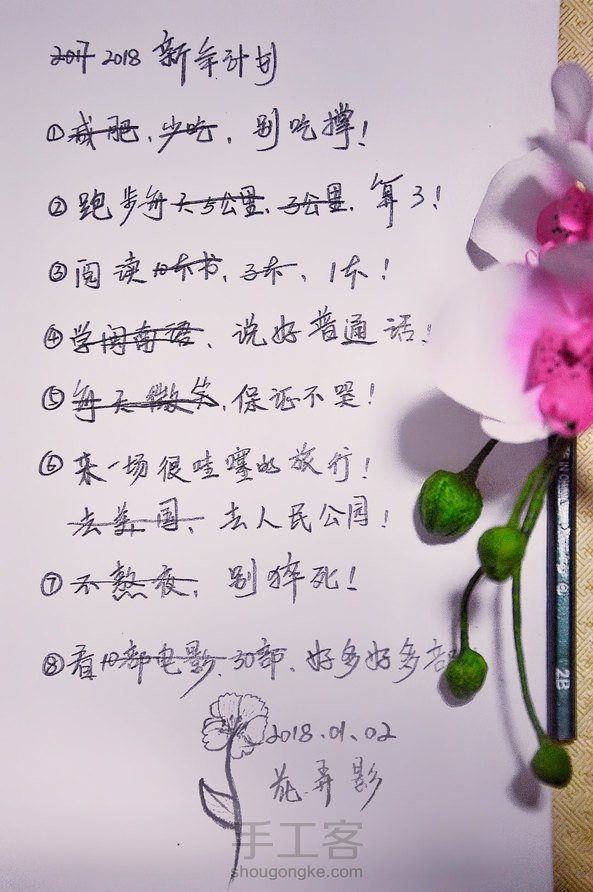 2017 2018 新年计划
①减肥、少吃，别吃撑！
②跑步每天5公里、3公里、算了！
③阅读10本书、3本、1本！
④学闽南语、说好普通话！
⑤每天微笑，保证不哭！
⑥来一场很哇噻的旅行！
去美国、去人民公园！
⑦不熬夜，别猝死！
⑧看10部电影、30部、好多好多部
2018.01.02
花弄影
手工客
shougongke.com
2B